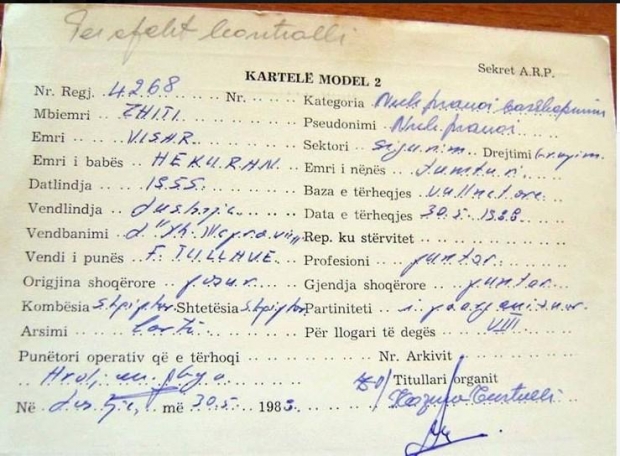 Per efekt kontrolli
Sekret A.R.P.
KARTELË MODEL 2
Nr. Regj. 4268 Nr. Kategoria Nuk pranoi bashkpunim
Mbiemri ZHITI Pseudonimi Nuk pranoi
Emri VISAR Sektori Sigurim Drejtimi
Emri i babës HEKURAN Emri i nënës
Datlindja 1955 Baza e tërheqjes vullnetare
Vendlindja Data e tërheqjes 30.5.1988
Vendbanimi Rep. ku stërvitet
Vendi i punës F. TULLAVE Profesioni puntor
Origjina shoqërore Gjendja shoqërore puntor
Kombësia Shqiptar Shtetësia Shqiptar Partiniteti i paorganizuar
Arsimi Lartë Për llogari të degës VIII
Punëtori operativ që e tërhoqi Nr. Arkivit
Titullari organit
Në më 30.5 198